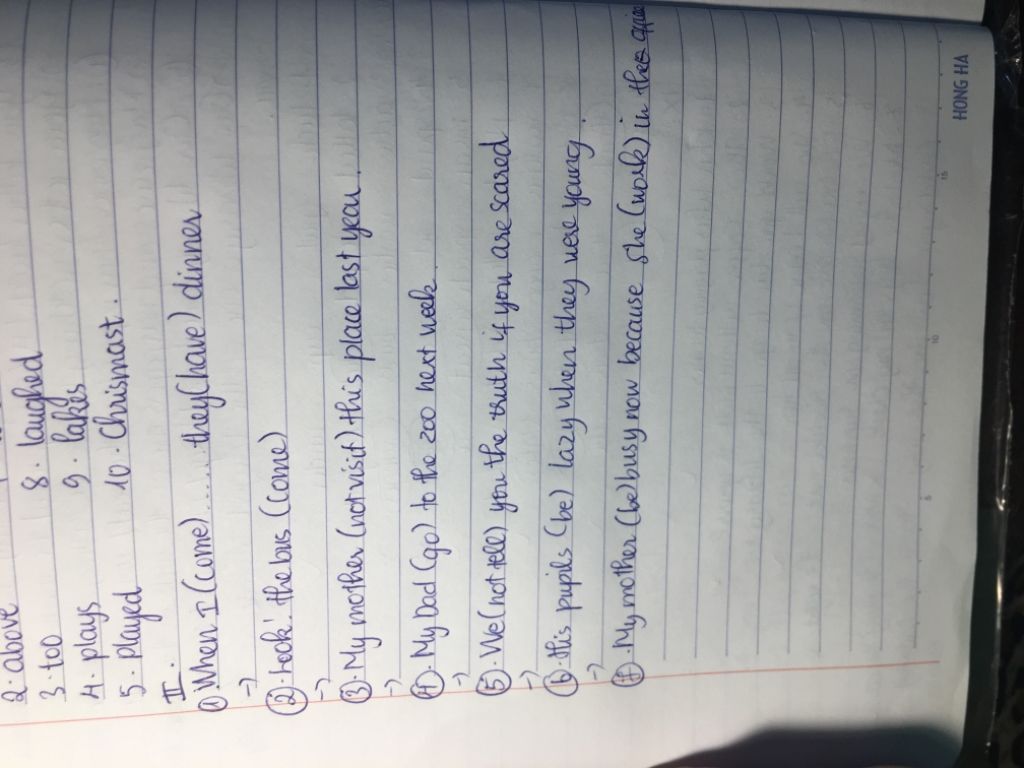 2. above
3. too
4. plays
5. played
8. laughed
9. lakes
10. Chrismast.
II.
① When I (come)..... they (have) dinner
->
②. Look! the bus (come)
->
③. My mother (not visit) this place last year.
->
④. My Dad (go) to the zoo next week
->
⑤. We (not tell) you the truth if you are scared
->
⑥. His pupils (be) lazy when they were young.
->
⑦. My mother (be) busy now because she (work) in the
HONG HA
5
10
15